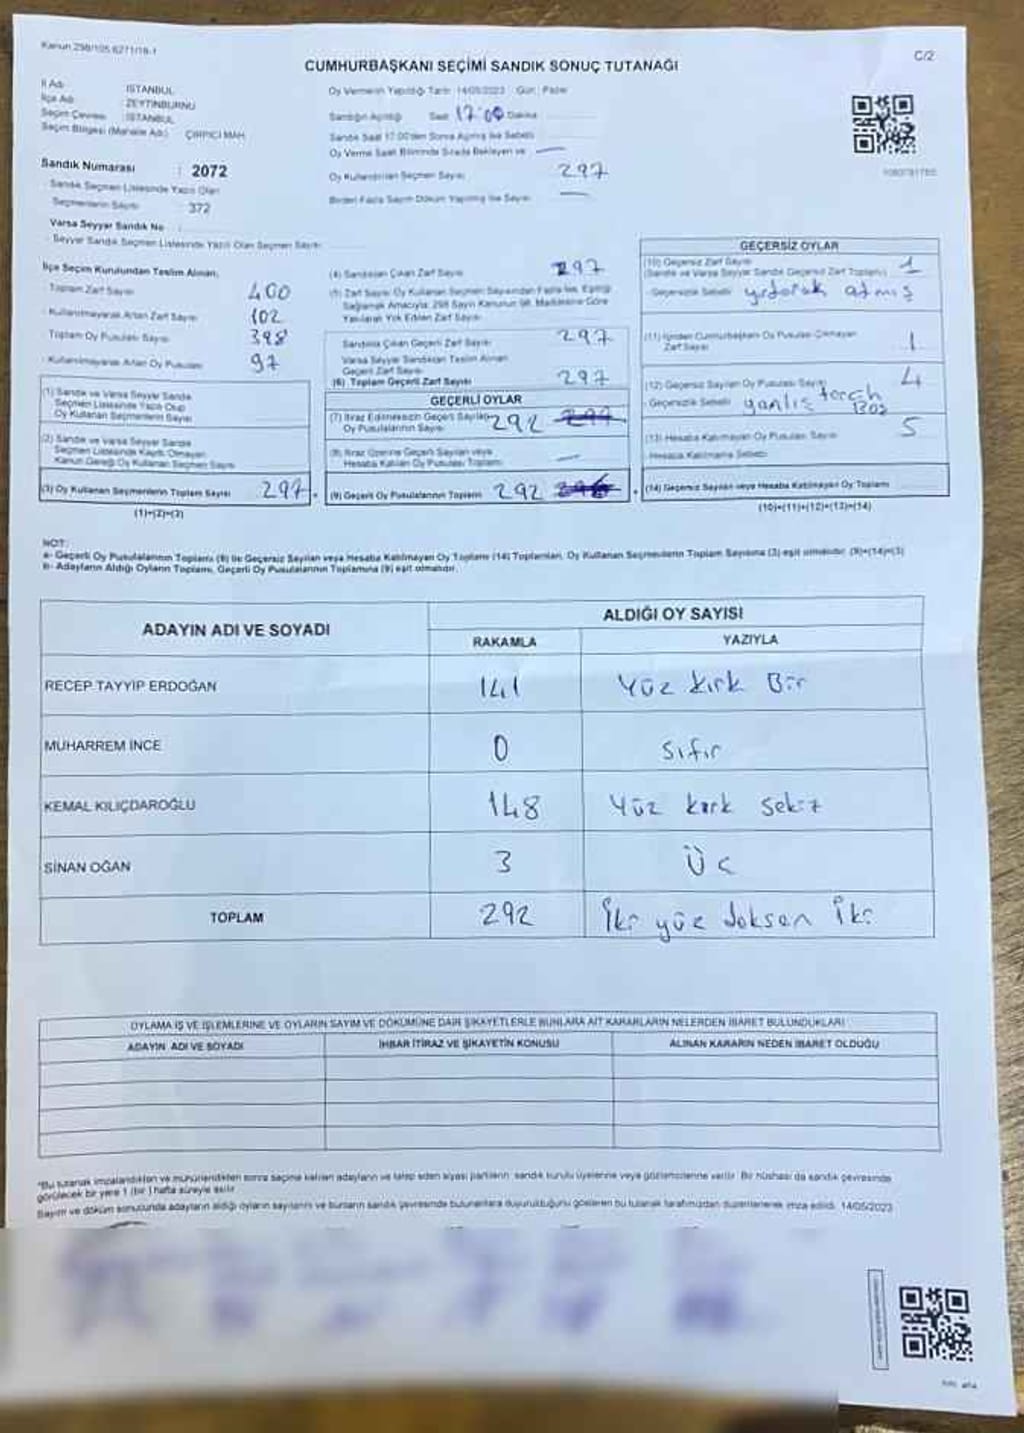 Kanun 298/105.6271/18-1
C/2
CUMHURBAŞKANI SEÇİMİ SANDIK SONUÇ TUTANAĞI
İl Adı : İSTANBUL
İlçe Adı : ZEYTİNBURNU
Seçim Çevresi : İSTANBUL
Seçim Bölgesi (Mahalle Adı) : ÇIRPICI MAH.
Sandık Numarası : 2072
Sandık Seçmen Listesinde Yazılı Olan
Seçmenlerin Sayısı : 372
Varsa Seyyar Sandık No :
Seyyar Sandık Seçmen Listesinde Yazılı Olan Seçmen Sayısı
Oy Vermenin Yapıldığı Tarih: 14/05/2023 Gün: Pazar
Sandığın Açıldığı Saat 17:00 Dakika
Sandık Saat 17:00'den Sonra Açılmış İse Sebebi
Oy Verme Saati Bitiminde Sırada Bekleyen ve —
Oy Kullandırılan Seçmen Sayısı 297
Birden Fazla Sayım Döküm Yapılmış İse Sayısı —
İlçe Seçim Kurulundan Teslim Alınan;
Toplam Zarf Sayısı 400
Kullanılmayarak Artan Zarf Sayısı 102
Toplam Oy Pusulası Sayısı 398
Kullanılmayarak Artan Oy Pusulası 97
(1) Sandık ve Varsa Seyyar Sandık
Seçmen Listesinde Yazılı Olup
Oy Kullanan Seçmenlerin Sayısı
(2) Sandık ve Varsa Seyyar Sandık
Seçmen Listesinde Kayıtlı Olmayan
Kanun Gereği Oy Kullanan Seçmen Sayısı
(3) Oy Kullanan Seçmenlerin Toplam Sayısı 297
(1)+(2)=(3)
(4) Sandıktan Çıkan Zarf Sayısı 297
(5) Zarf Sayısı Oy Kullanan Seçmen Sayısından Fazla İse, Eşitliği
Sağlamak Amacıyla, 298 Sayılı Kanunun 98. Maddesine Göre
Yakılarak Yok Edilen Zarf Sayısı
Sandıkta Çıkan Geçerli Zarf Sayısı 297
Varsa Seyyar Sandıktan Teslim Alınan
Geçerli Zarf Sayısı
(6) Toplam Geçerli Zarf Sayısı 297
GEÇERLİ OYLAR
(7) İtiraz Edilmeksizin Geçerli Sayılan
Oy Pusulalarının Sayısı 292
(8) İtiraz Üzerine Geçerli Sayılan veya
Hesaba Katılan Oy Pusulası Toplamı —
(9) Geçerli Oy Pusulalarının Toplamı 292
GEÇERSİZ OYLAR
(10) Geçersiz Zarf Sayısı 1
(Sandık ve Varsa Seyyar Sandık Geçersiz Zarf Toplamı)
Geçersizlik Sebebi
(11) İçinden Cumhurbaşkanı Oy Pusulası Çıkmayan
Zarf Sayısı 1
(12) Geçersiz Sayılan Oy Pusulası Sayısı 4
Geçersizlik Sebebi yanlış
(13) Hesaba Katılmayan Oy Pusulası Sayısı 5
Hesaba Katılmama Sebebi
(14) Geçersiz Sayılan veya Hesaba Katılmayan Oy Toplamı
(10)+(11)+(12)+(13)=(14)
NOT:
a- Geçerli Oy Pusulalarının Toplamı (9) ile Geçersiz Sayılan veya Hesaba Katılmayan Oy Toplamı (14) Toplamları, Oy Kullanan Seçmenlerin Toplam Sayısına (3) eşit olmalıdır. (9)+(14)=(3)
b- Adayların Aldığı Oyların Toplamı, Geçerli Oy Pusulalarının Toplamına (9) eşit olmalıdır.
ADAYIN ADI VE SOYADI
ALDIĞI OY SAYISI
RAKAMLA YAZIYLA
RECEP TAYYİP ERDOĞAN 141 Yüz Kırk Bir
MUHARREM İNCE 0 Sıfır
KEMAL KILIÇDAROĞLU 148 Yüz kırk sekiz
SİNAN OĞAN 3 Üç
TOPLAM 292 İki yüz doksan iki
OYLAMA İŞ VE İŞLEMLERİNE VE OYLARIN SAYIM VE DÖKÜMÜNE DAİR ŞİKAYETLERLE BUNLARA AİT KARARLARIN NELERDEN İBARET BULUNDUKLARI
ADAYIN ADI VE SOYADI İHBAR İTİRAZ VE ŞİKAYETİN KONUSU ALINAN KARARIN NEDEN İBARET OLDUĞU
*Bu tutanak imzalandıktan ve mühürlendikten sonra seçime katılan adayların ve talep eden siyasi partilerin sandık kurulu üyelerine veya gözlemcilerine verilir. Bir nüshası da sandık çevresinde
görülecek bir yere 1 (bir) hafta süreyle asılır.
Sayım ve döküm sonucunda adayların aldığı oyların sayılarını ve bunların sandık çevresinde bulunanlara duyurulduğunu gösteren bu tutanak tarafımızdan düzenlenerek imza edildi. 14/05/2023